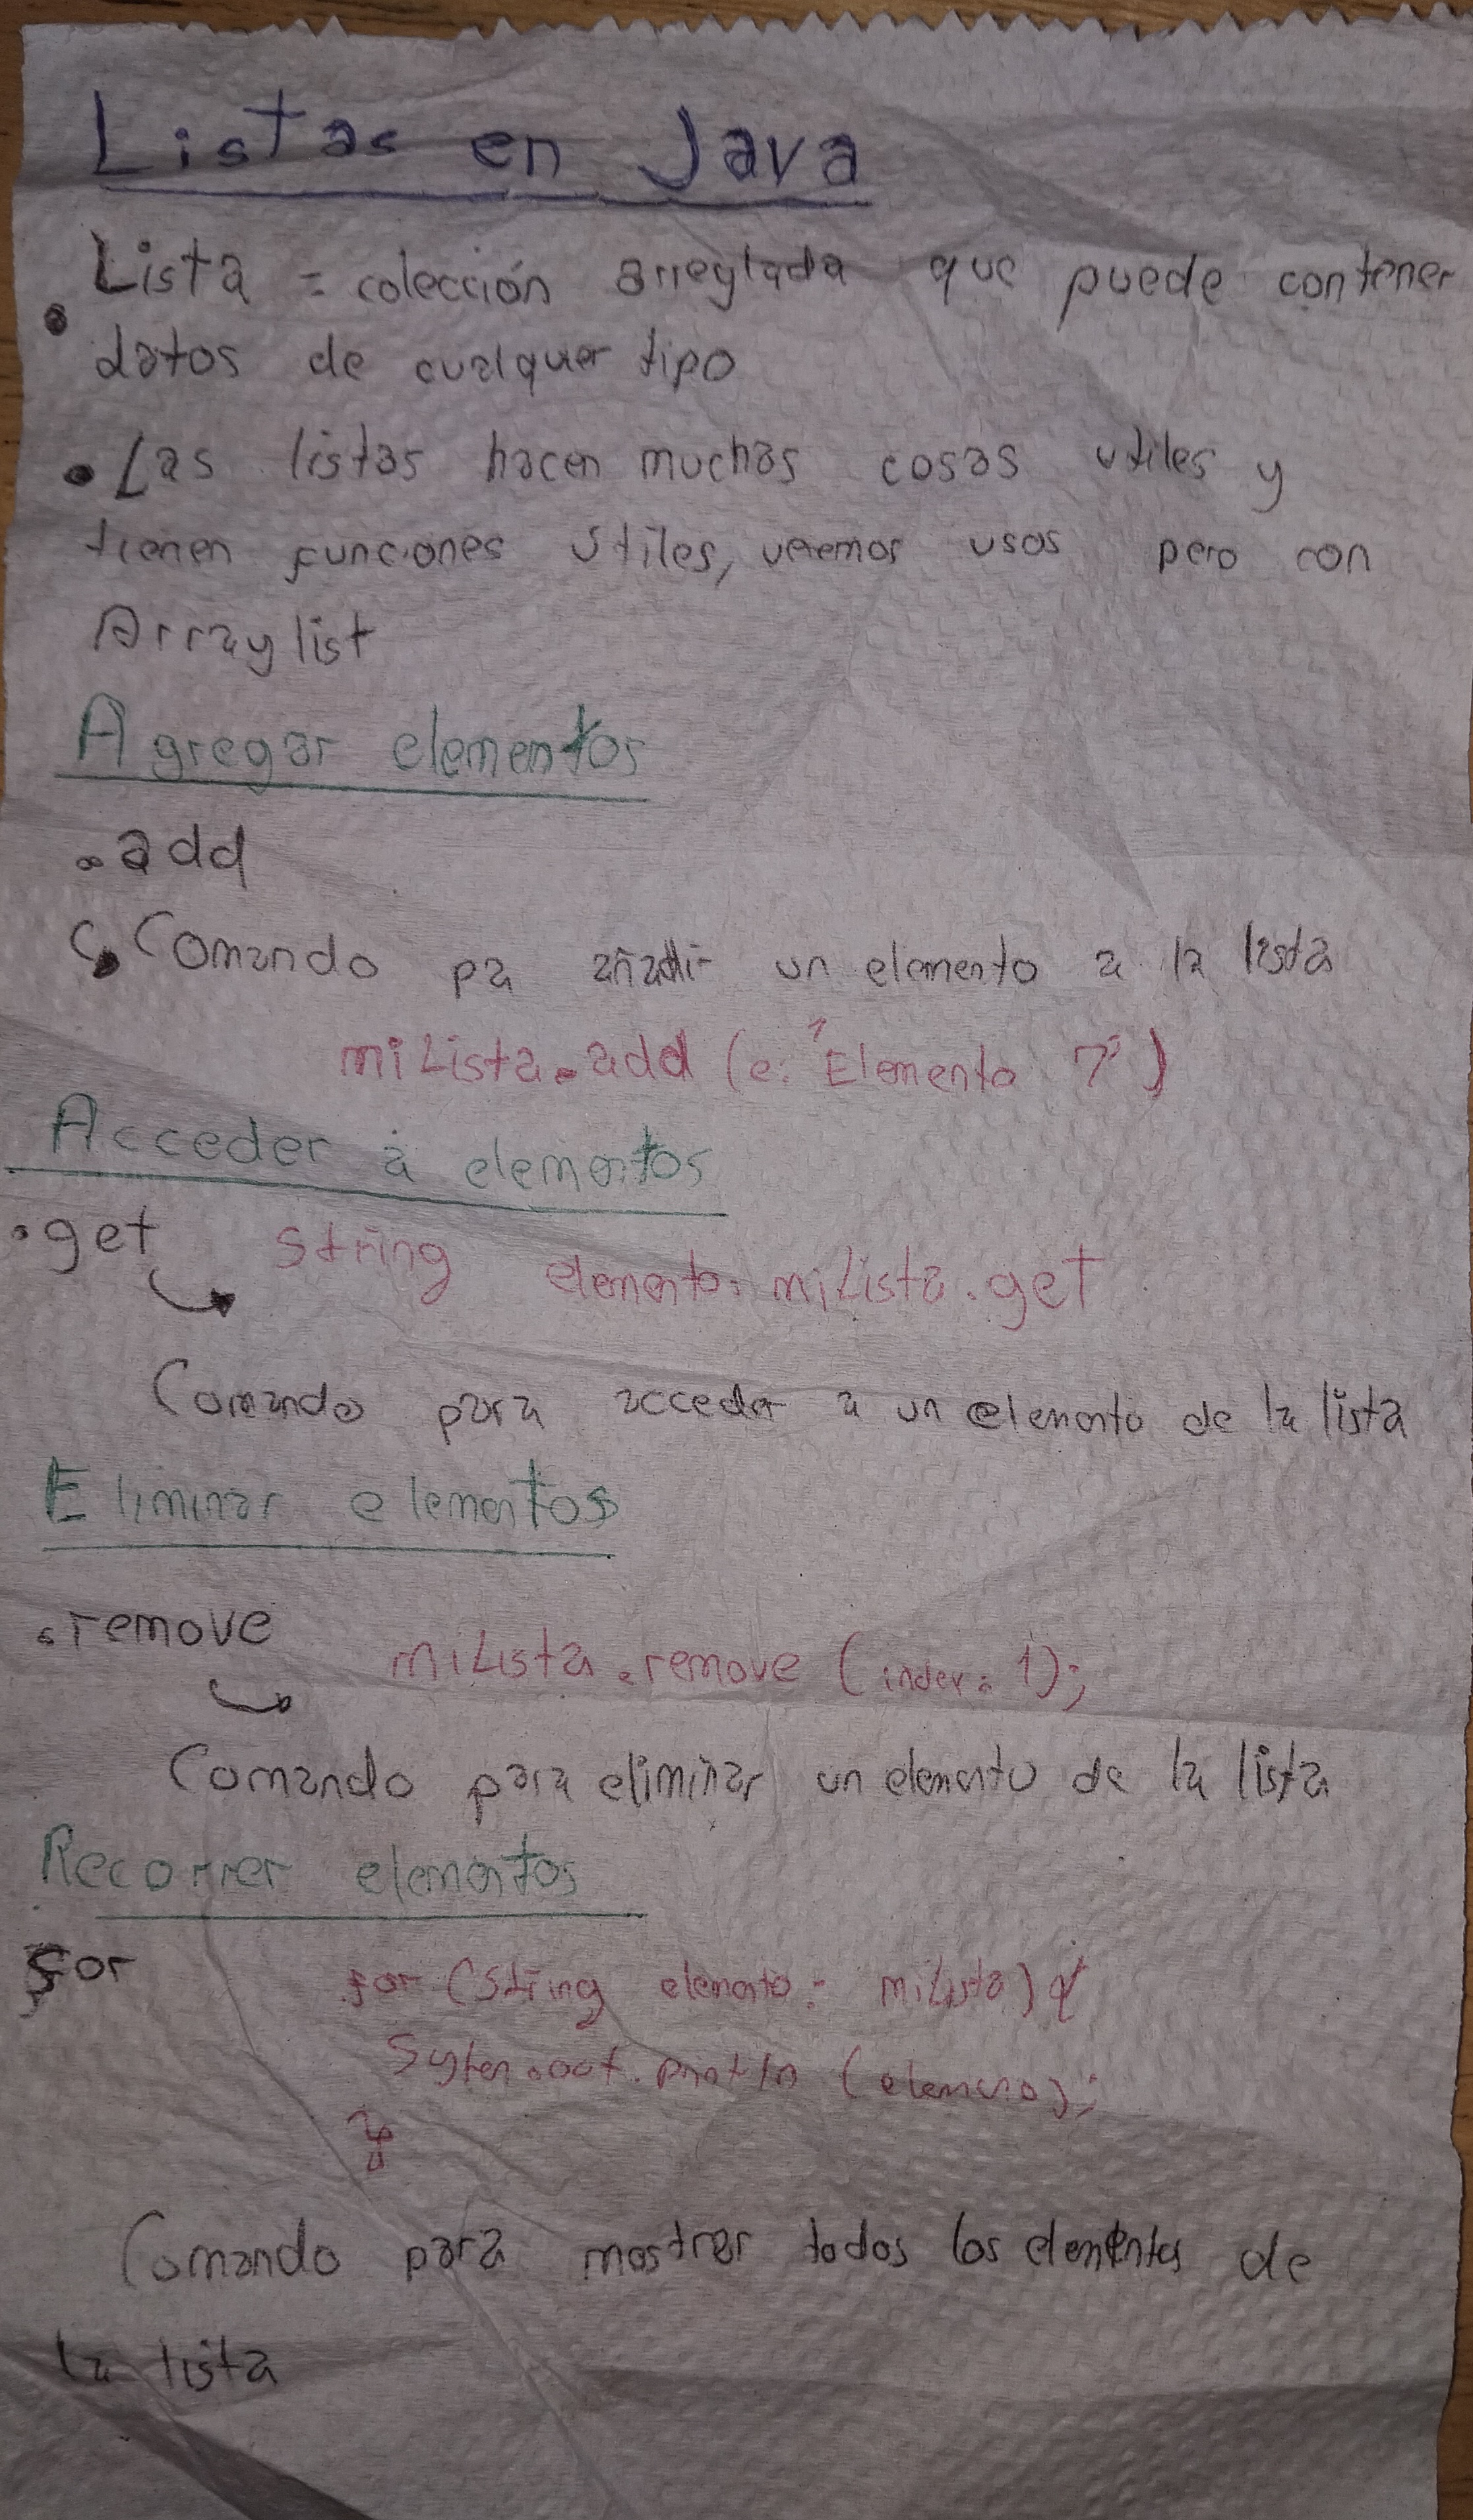 Listas en Java
Lista = colección arreglada que puede contener
• datos de cualquier tipo
• Las listas hacen muchas cosas utiles y
tienen funciones utiles, veremos usos pero con
Arraylist
Agregar elementos
.add
↳ Comando pa añadir un elemento a la lista
miLista.add (e: "Elemento 7")
Acceder a elementos
.get String elemento: miLista.get
Comando para acceder a un elemento de la lista
Eliminar elementos
.remove miLista.remove (index: 1);
Comando para eliminar un elemento de la lista
Recorrer elementos
for for (String elemento: miLista) {
System.out.println (elemento);
}
Comando para mostrar todos los elementos de
la lista